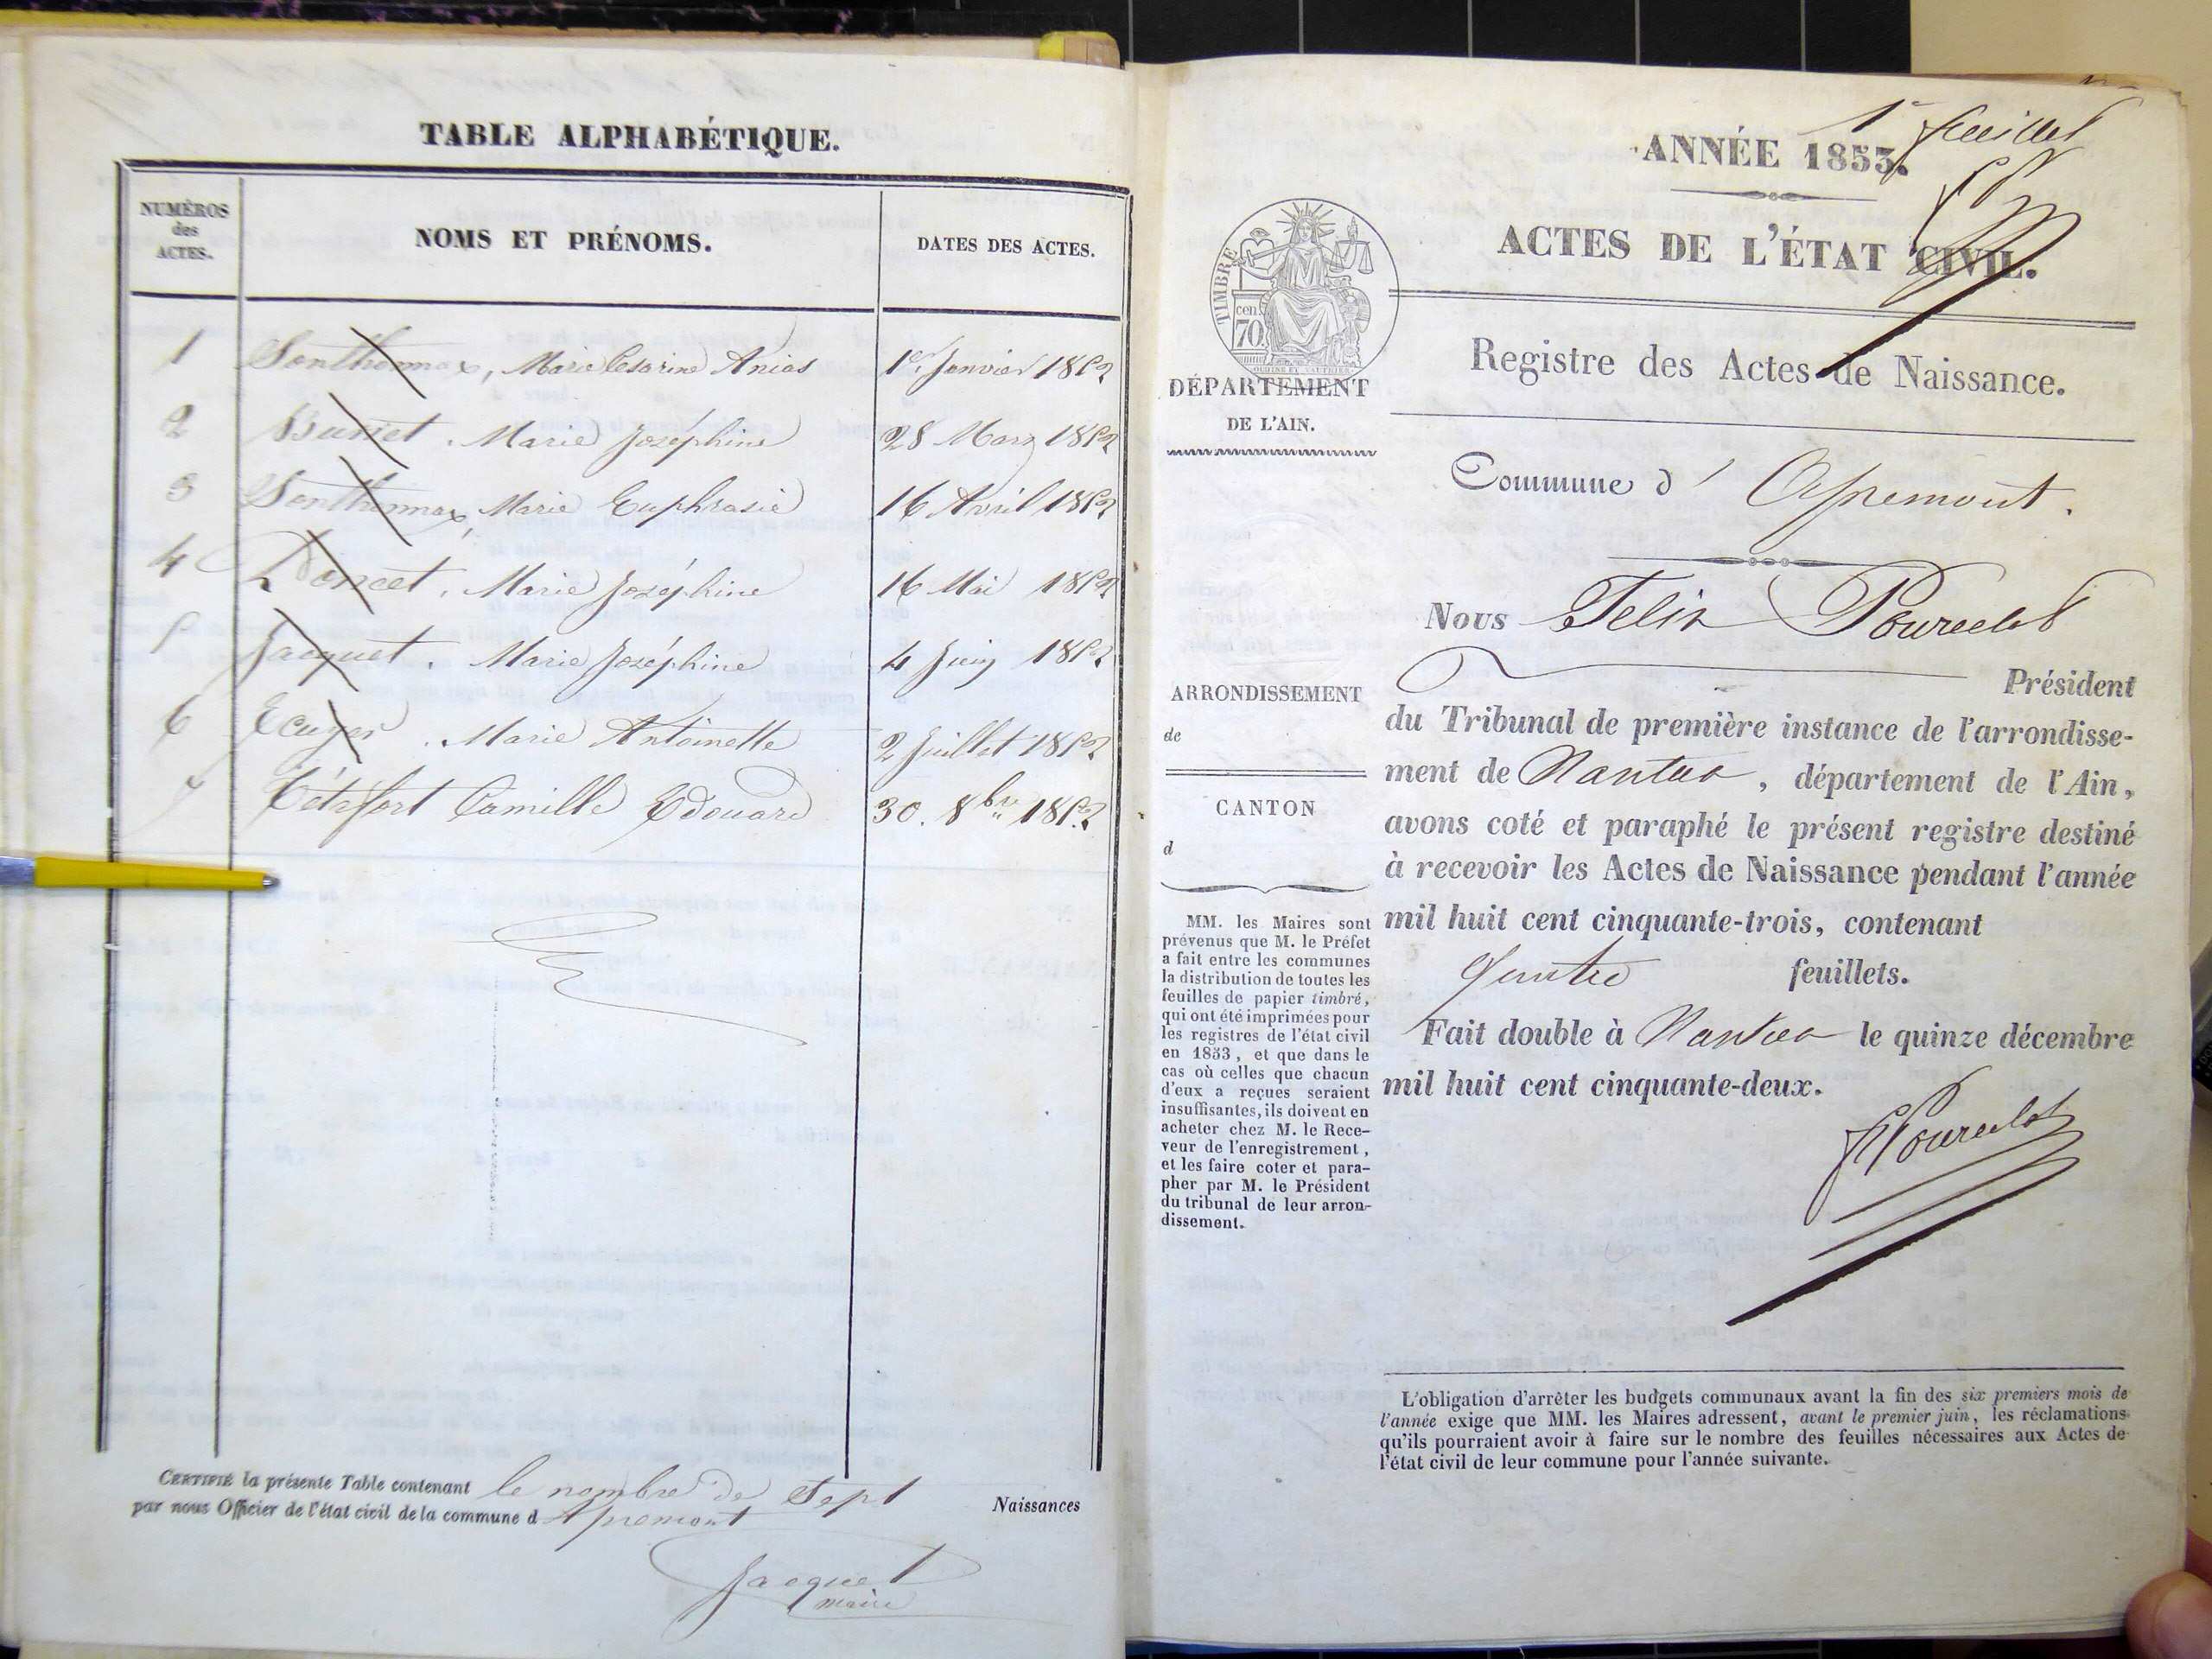 TABLE ALPHABÉTIQUE.
NUMÉROS
des
ACTES.
NOMS ET PRÉNOMS.
DATES DES ACTES.
1 Sonthonnax, Marie Cesarine Anias 1er Janvier 1852
2 Burlet, Marie Joséphine 28 Mars 1852
3 Sonthonnax, Marie Euphrasie 16 Avril 1852
4 Doncet, Marie Joséphine 16 Mai 1852
5 Jacquet, Marie Joséphine 4 Juin 1852
6 Ecuyer, Marie Antoinette 2 Juillet 1852
7 Tétafort Camille Edouard 30. 8bre 1852
CERTIFIÉ la présente Table contenant le nombre de Sept Naissances
par nous Officier de l'état civil de la commune d Apremont
Jacquet
maire
1er feuillet
ANNÉE 1853.
ACTES DE L'ÉTAT CIVIL.
TIMBRE
70 cen
Registre des Actes de Naissance.
DÉPARTEMENT
DE L'AIN.
Commune d' Apremont.
Nous Felix Pourcelot
Président
ARRONDISSEMENT
de
CANTON
d
du Tribunal de première instance de l'arrondisse-
ment de Nantua, département de l'Ain,
avons coté et paraphé le présent registre destiné
à recevoir les Actes de Naissance pendant l'année
mil huit cent cinquante-trois, contenant
Quatre feuillets.
Fait double à Nantua le quinze décembre
mil huit cent cinquante-deux.
F Pourcelot
MM. les Maires sont
prévenus que M. le Préfet
a fait entre les communes
la distribution de toutes les
feuilles de papier timbré,
qui ont été imprimées pour
les registres de l'état civil
en 1853, et que dans le
cas où celles que chacun
d'eux a reçues seraient
insuffisantes, ils doivent en
acheter chez M. le Rece-
veur de l'enregistrement,
et les faire coter et para-
pher par M. le Président
du tribunal de leur arron-
dissement.
L'obligation d'arrêter les budgets communaux avant la fin des six premiers mois de
l'année exige que MM. les Maires adressent, avant le premier juin, les réclamations
qu'ils pourraient avoir à faire sur le nombre des feuilles nécessaires aux Actes de
l'état civil de leur commune pour l'année suivante.